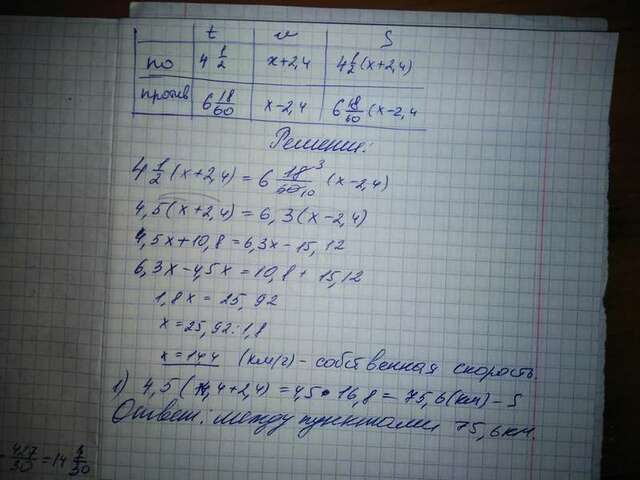 t v S
по 4 1/2 x+2,4 4 1/2 (x+2,4)
против 6 18/60 x-2,4 6 18/60 (x-2,4
Решение:
4 1/2 (x+2,4) = 6 18/60 3 10 (x-2,4)
4,5(x+2,4) = 6,3(x-2,4)
4,5x+10,8 = 6,3x-15,12
6,3x-4,5x = 10,8+15,12
1,8x = 25,92
x = 25,92:1,8
x = 14,4 (км/г) - собственная скорость.
1) 4,5(14,4+2,4) = 4,5•16,8 = 75,6(км) - S
Ответ. между пунктами 75,6км.
427/30 = 14